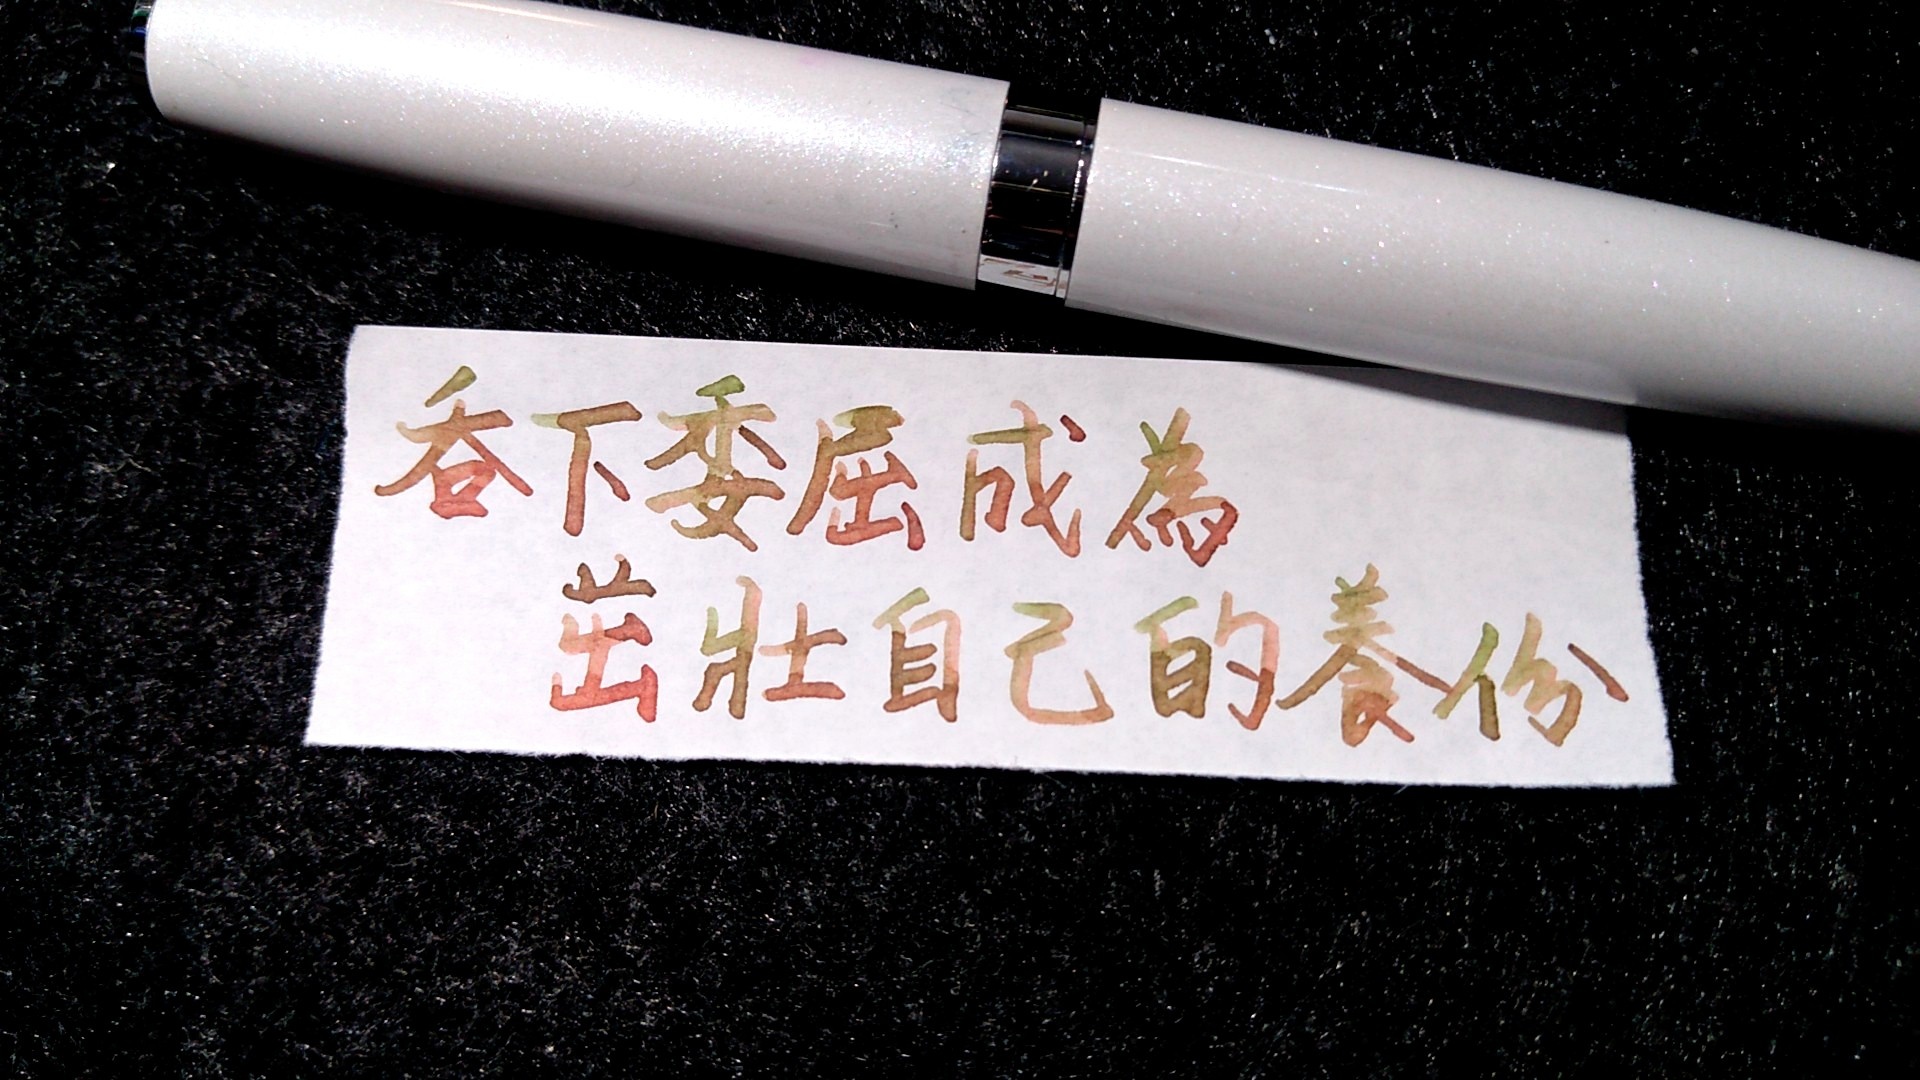 吞下委屈成為
茁壯自己的養份